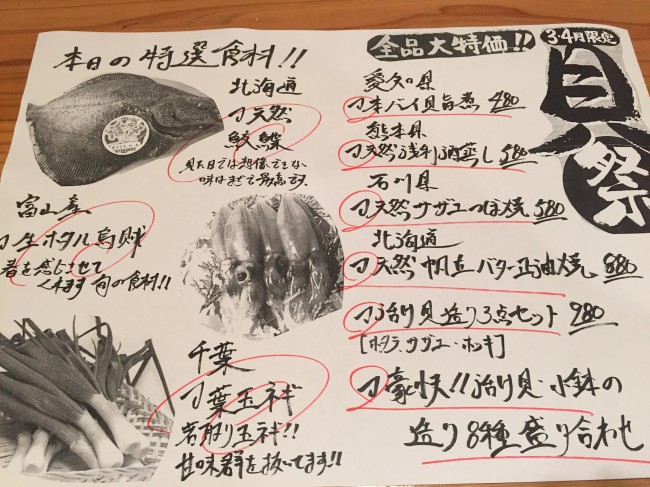 本日の特選食材!!
北海道
天然
鮫鰈
見た目では想像できない
味はまじで最高です.
富山産
生ホタル烏賊
春を感じさせて
くれます旬の食材!!
千葉
葉玉ネギ
若取り玉ネギ!!
甘味群を抜いてます!!
全品大特価!!
3・4月限定
貝祭
愛知県
本バイ貝旨煮 480
熊本県
天然浅利酒蒸し 580
石川県
天然サザエつぼ焼 580
北海道
天然帆立バター正油焼 880
活〆貝造り3点セット 980
[ホタテ、サザエ・ホッキ]
豪快!!活〆貝・小鉢の
造り8種盛り合わせ